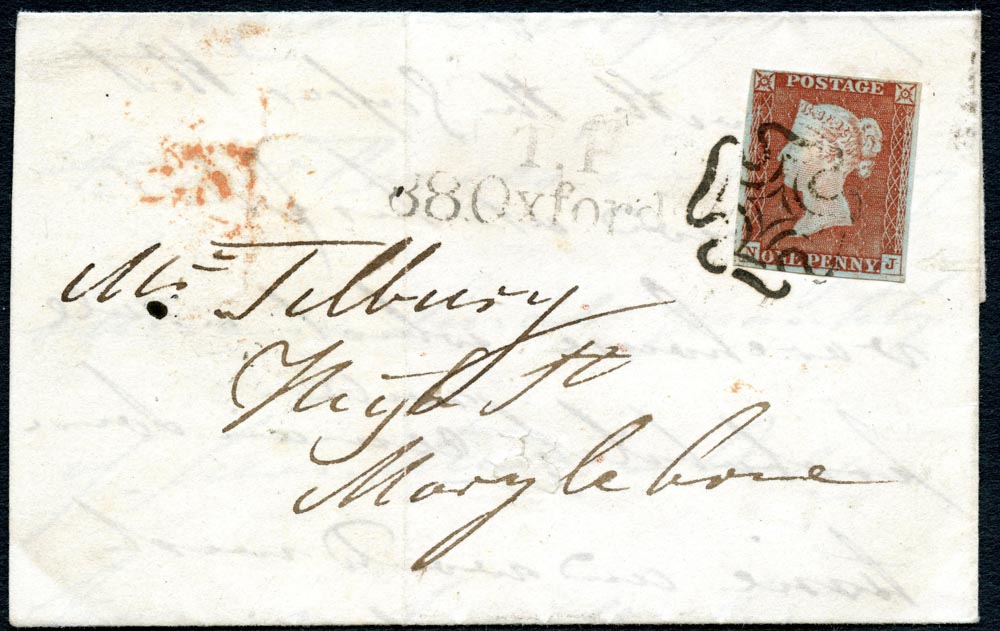 POSTAGE
T.P
88.Oxford
N ONE PENNY J
Mr Tilbury
High St
Marylebone